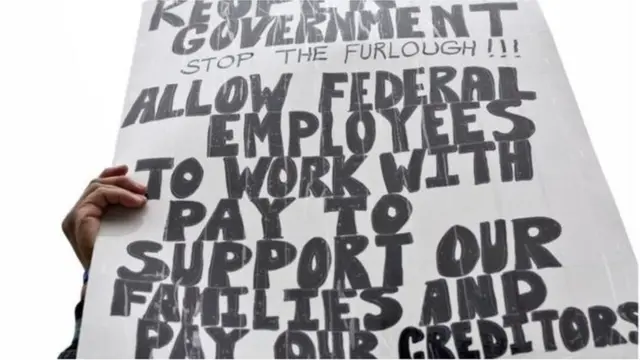 GOVERNMENT
STOP THE FURLOUGH!!!
ALLOW FEDERAL
EMPLOYEES
TO WORK WITH
PAY TO
SUPPORT OUR
FAMILIES AND
PAY OUR CREDITORS